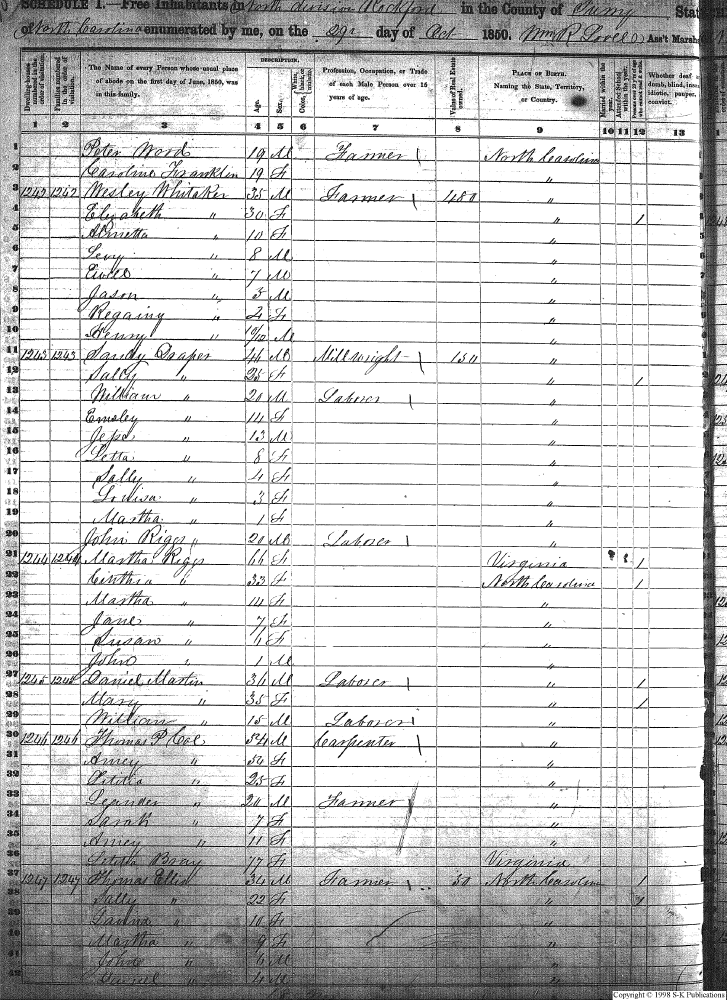 SCHEDULE I.—Free Inhabitants in North division Rockford in the County of Surry State
of North Carolina enumerated by me, on the 29th day of Oct 1850. Wm R Lovell Ass't Marshal
The Name of every Person whose usual place of abode on the first day of June, 1850, was in this family.
DESCRIPTION.
Age. Sex. Color,
Profession, Occupation, or Trade of each Male Person over 15 years of age.
Value of Real Estate owned.
PLACE OF BIRTH. Naming the State, Territory, or Country.
Whether deaf and dumb, blind, insane, idiotic, pauper, convict.
1 2 3 4 5 6 7 8 9 10 11 12 13
1 Peter Word 19 M Farmer North Carolina
2 Caroline Franklin 19 F "
3 1242 1242 Wesley Whitaker 35 M Farmer 480 "
4 Elizabeth " 30 F " 1
5 " 10 F "
6 Levy " 8 M "
7 " 7 M "
8 Jason " 5 M "
9 Regainy " 2 F "
10 Henry " 10/12 M "
11 1243 1243 Sandy Draper 44 M Millwright 150 "
12 Sally " 25 F " 1
13 William " 20 M Laborer "
14 Emsley " 14 F "
15 Jesse " 13 M "
16 Letta " 8 F "
17 Sally " 4 F "
18 Louisa " 3 F "
19 Martha " 1 F "
20 John Riggs " 20 M Laborer "
21 1244 1244 Martha Riggs 66 F Virginia 1
22 Cinthia " 33 F North Carolina 1
23 Martha " 14 F "
24 Jane " 7 F "
25 Susan " 4 F "
26 John " 1 M "
27 1245 1245 Daniel Martin 36 M Laborer " 1
28 Mary " 35 F " 1
29 William " 15 M Laborer "
30 1246 1246 Thomas P Coe 54 M Carpenter "
31 Amey " 50 F "
32 Letitia " 25 F "
33 Leander " 20 M Farmer "
34 Sarah " 7 F "
35 Amey " 11 F "
36 Letitia Bray 77 F Virginia
37 1247 1247 Thomas Ellis 34 M Farmer 50 North Carolina 1
38 Sally " 22 F " 1
39 " 10 F "
40 Martha " 9 F "
41 John " 6 M "
42 Daniel " 4 M "
Copyright © 1998 S-K Publications